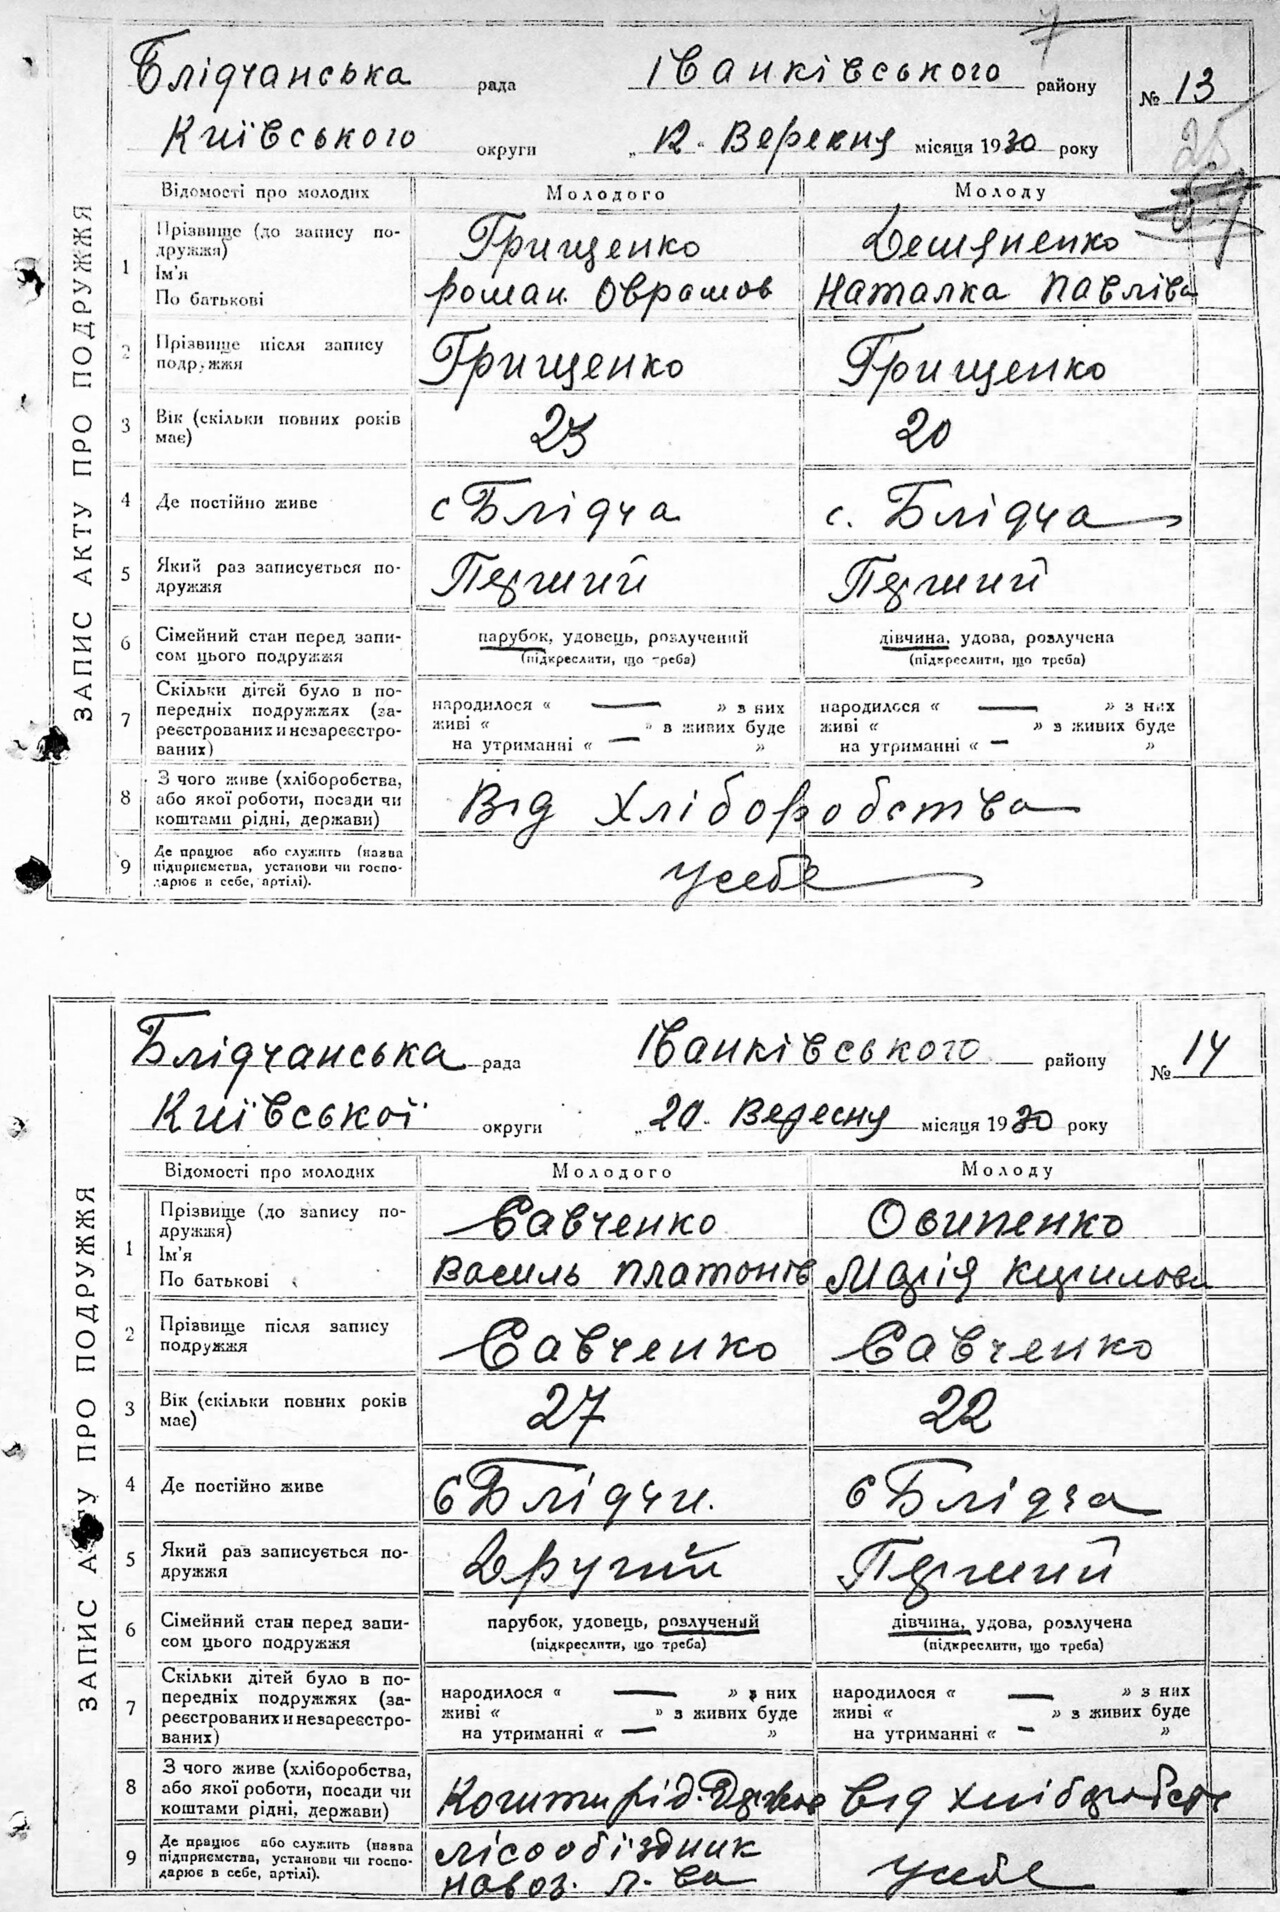 7
Блідчанська рада Іванківського району № 13
Київського округи „12“ Вересня місяця 1930 року
25
ЗАПИС АКТУ ПРО ПОДРУЖЖЯ
Відомості про молодих Молодого Молоду
1 Прізвище (до запису по-
дружжя) Грищенко Демяненко
Ім'я
По батькові Роман Оврамов Наталка Павлівн
2 Прізвище після запису
подружжя Грищенко Грищенко
3 Вік (скільки повних років
має) 23 20
4 Де постійно живе с Блідча с. Блідча
5 Який раз записується по-
дружжя Перший Перший
6 Сімейний стан перед запи-
сом цього подружжя парубок, удовець, розлучений дівчина, удова, розлучена
(підкреслити, що треба) (підкреслити, що треба)
7 Скільки дітей було в по-
передніх подружжях (за-
реєстрованих и незареєстро-
ваних)
народилося « — » з них народилося « — » з них
живі « » в живих буде живі « » з живих буде
на утриманні « — » на утриманні « — »
8 З чого живе (хліборобства,
або якої роботи, посади чи
коштами рідні, держави) Від Хліборобства
9 Де працює або служить (назва
підприємства, установи чи госпо-
дарює в себе, артілі). усебе
Блідчанська рада Іванківського району № 14
Київської округи „20“ Вересну місяця 1930 року
ЗАПИС АКТУ ПРО ПОДРУЖЖЯ
Відомості про молодих Молодого Молоду
1 Прізвище (до запису по-
дружжя) Савченко Осипенко
Ім'я
По батькові Василь Платонів Марія Кирилови
2 Прізвище після запису
подружжя Савченко Савченко
3 Вік (скільки повних років
має) 27 22
4 Де постійно живе с Блідчи. с Блідча
5 Який раз записується по-
дружжя Другий Перший
6 Сімейний стан перед запи-
сом цього подружжя парубок, удовець, розлучений дівчина, удова, розлучена
(підкреслити, що треба) (підкреслити, що треба)
7 Скільки дітей було в по-
передніх подружжях (за-
реєстрованих и незареєстро-
ваних)
народилося « — » з них народилося « — » з них
живі « » з живих буде живі « » з живих буде
на утриманні « — » на утриманні « — »
8 З чого живе (хліборобства,
або якої роботи, посади чи
коштами рідні, держави) Кошти рід. Від хліборобств
9 Де працює або служить (назва
підприємства, установи чи госпо-
дарює в себе, артілі). лісообїздник усебе
навоз. л-ва